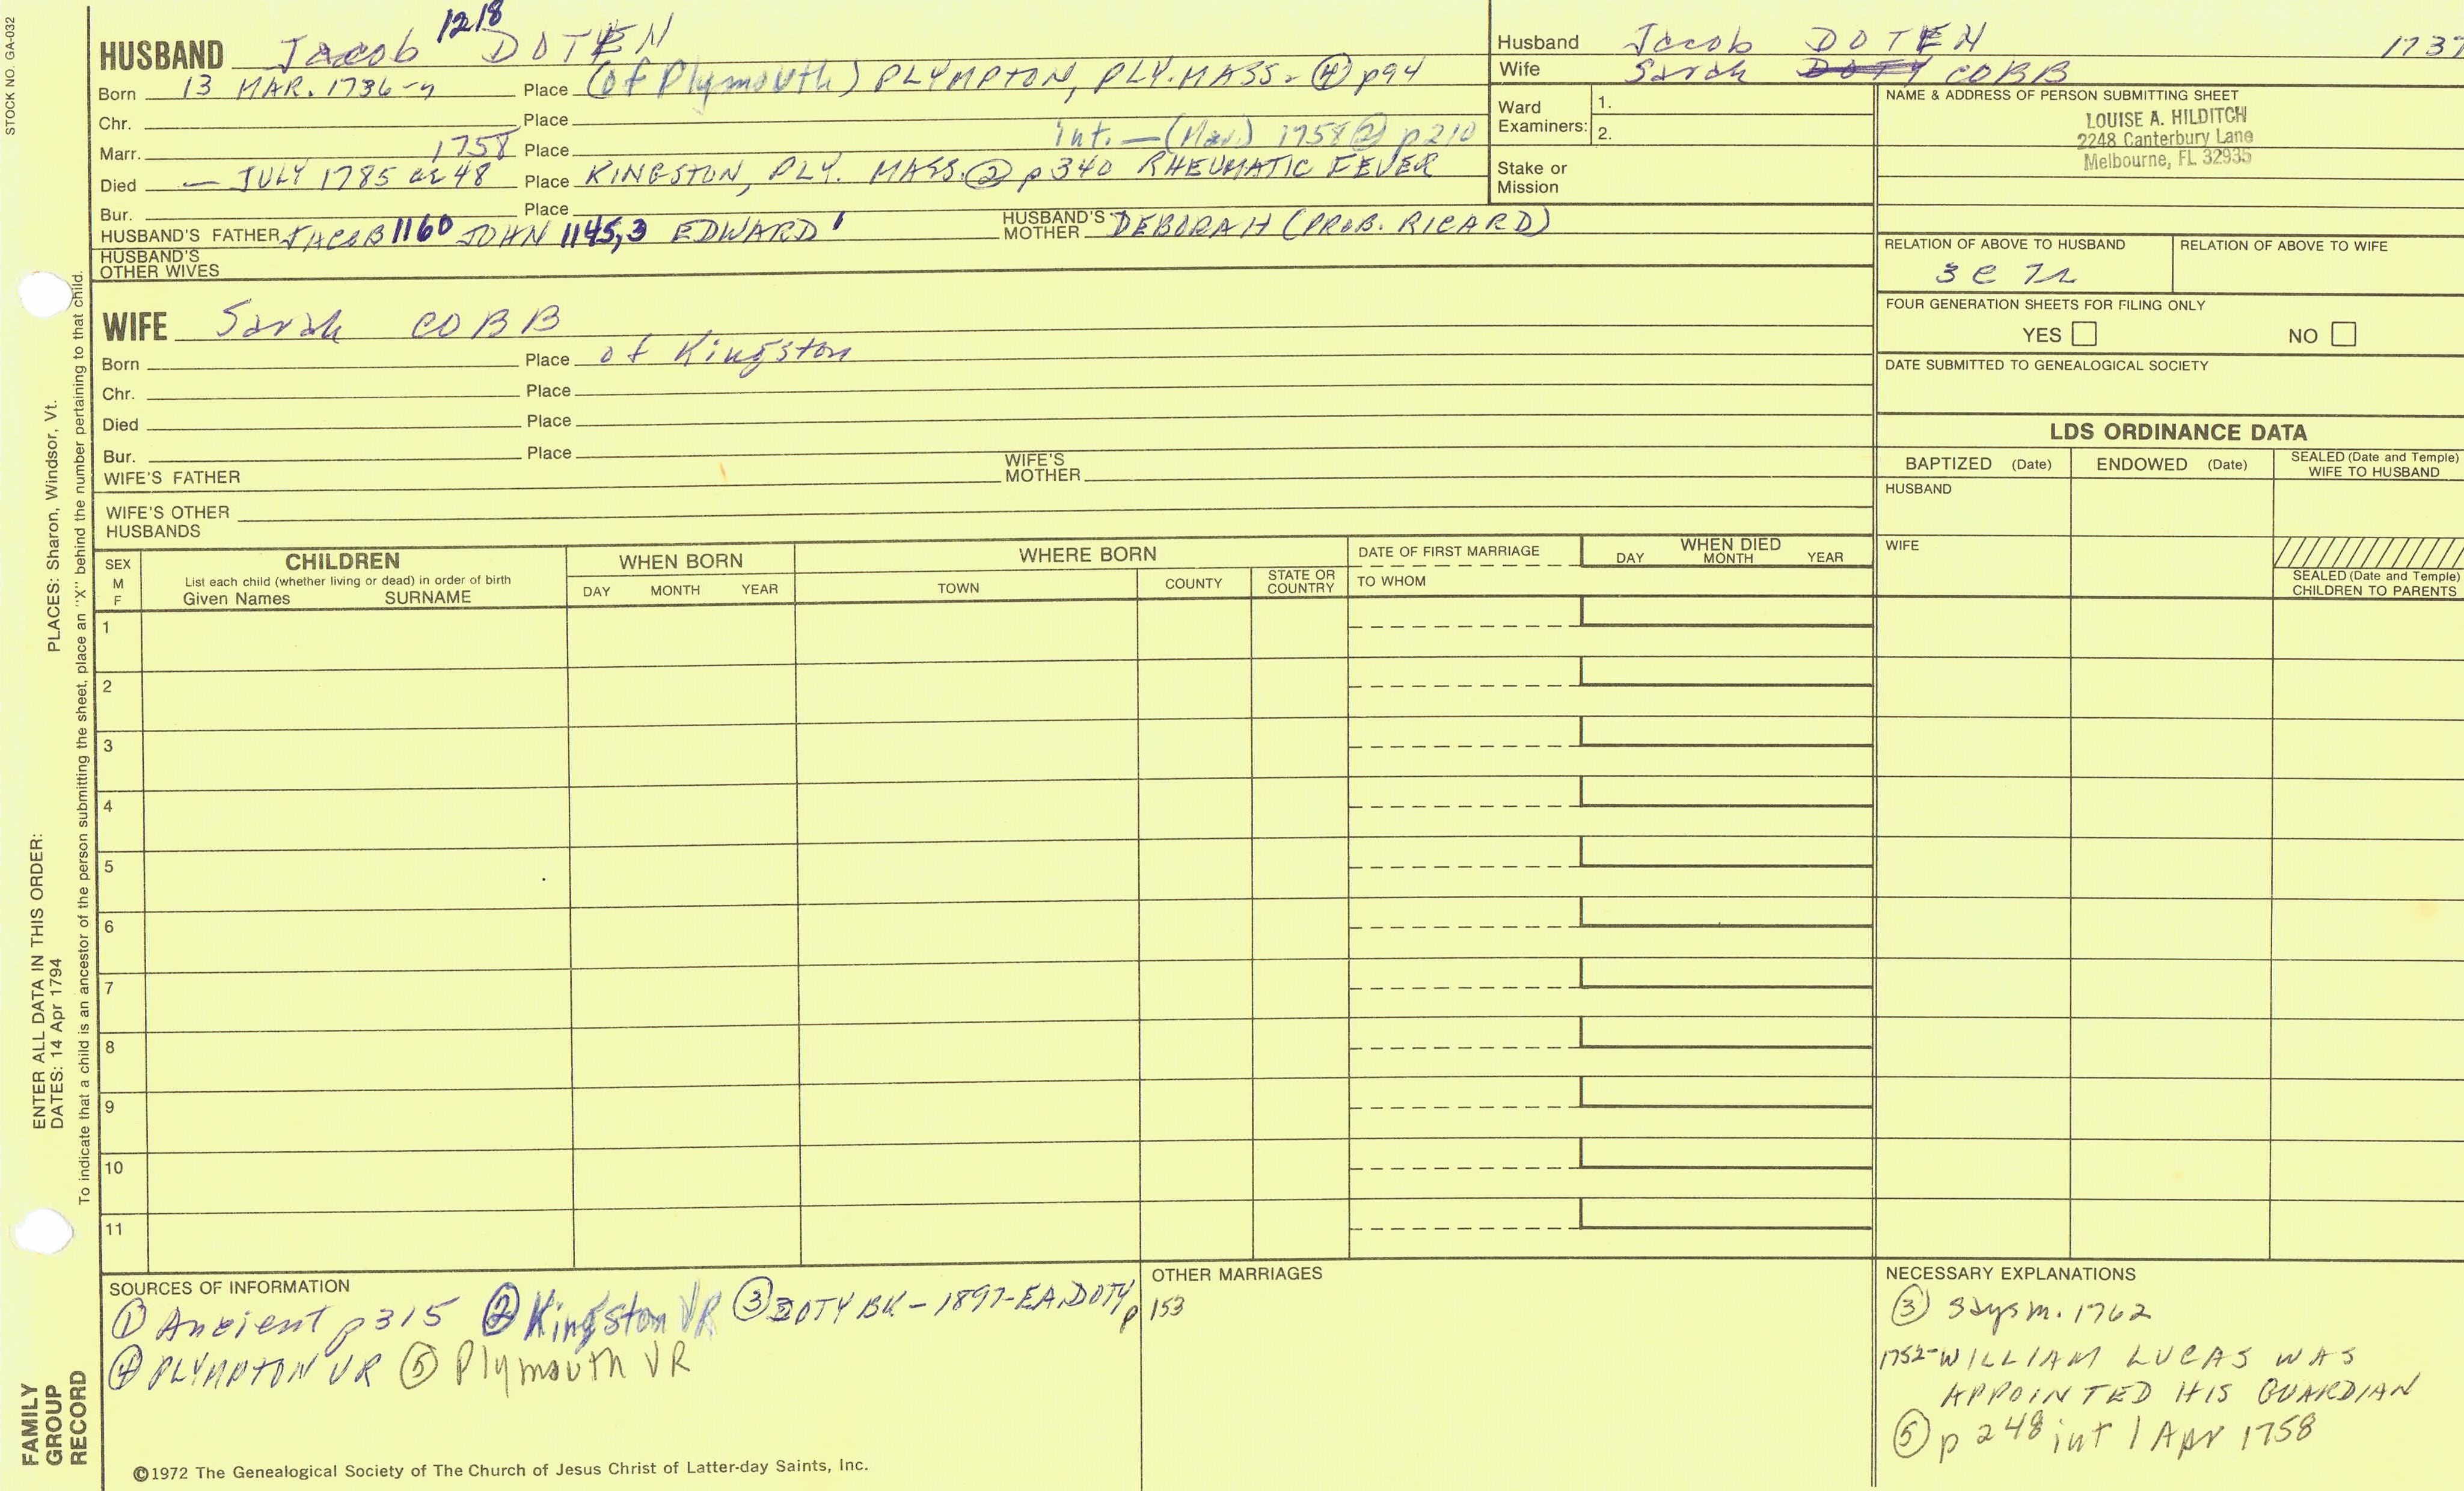 STOCK NO. GA-032
1218
HUSBAND Jacob DOTEN
Born 13 MAR. 1736-7 Place (of Plymouth) PLYMPTON, PLY. MASS. ④ p94
Chr. Place
Marr. 1758 Place int. — (Mar.) 1758 ② p210
Died — JULY 1785 ae 48 Place KINGSTON, PLY. MASS. ② p340 RHEUMATIC FEVER
Bur. Place
HUSBAND'S FATHER JACOB 1160 JOHN 1145,3 EDWARD 1 HUSBAND'S MOTHER DEBORAH (PROB. RICARD)
HUSBAND'S OTHER WIVES
WIFE Sarah COBB
Born Place of Kingston
Chr. Place
Died Place
Bur. Place
WIFE'S FATHER WIFE'S MOTHER
WIFE'S OTHER HUSBANDS
Husband Jacob DOTEN 1737
Wife Sarah DOTY COBB
Ward Examiners: 1.
2.
Stake or Mission
NAME & ADDRESS OF PERSON SUBMITTING SHEET
LOUISE A. HILDITCH
2248 Canterbury Lane
Melbourne, FL 32935
RELATION OF ABOVE TO HUSBAND RELATION OF ABOVE TO WIFE
3 C 7R
FOUR GENERATION SHEETS FOR FILING ONLY
YES NO
DATE SUBMITTED TO GENEALOGICAL SOCIETY
LDS ORDINANCE DATA
BAPTIZED (Date) ENDOWED (Date) SEALED (Date and Temple) WIFE TO HUSBAND
HUSBAND
WIFE
SEALED (Date and Temple) CHILDREN TO PARENTS
SEX M F CHILDREN WHEN BORN WHERE BORN DATE OF FIRST MARRIAGE WHEN DIED
List each child (whether living or dead) in order of birth
Given Names SURNAME DAY MONTH YEAR TOWN COUNTY STATE OR COUNTRY TO WHOM DAY MONTH YEAR
1
2
3
4
5
6
7
8
9
10
11
SOURCES OF INFORMATION
① Ancient p 315 ② Kingston VR ③ DOTY BK - 1897 - EA. DOTY p 153
④ PLYMPTON VR ⑤ Plymouth VR
OTHER MARRIAGES
NECESSARY EXPLANATIONS
③ says m. 1762
1752 - WILLIAM LUCAS WAS
APPOINTED HIS GUARDIAN
⑤ p 248 int 1 Apr 1758
©1972 The Genealogical Society of The Church of Jesus Christ of Latter-day Saints, Inc.
FAMILY GROUP RECORD
ENTER ALL DATA IN THIS ORDER:
DATES: 14 Apr 1794
PLACES: Sharon, Windsor, Vt.
To indicate that a child is an ancestor of the person submitting the sheet, place an "X" behind the number pertaining to that child.